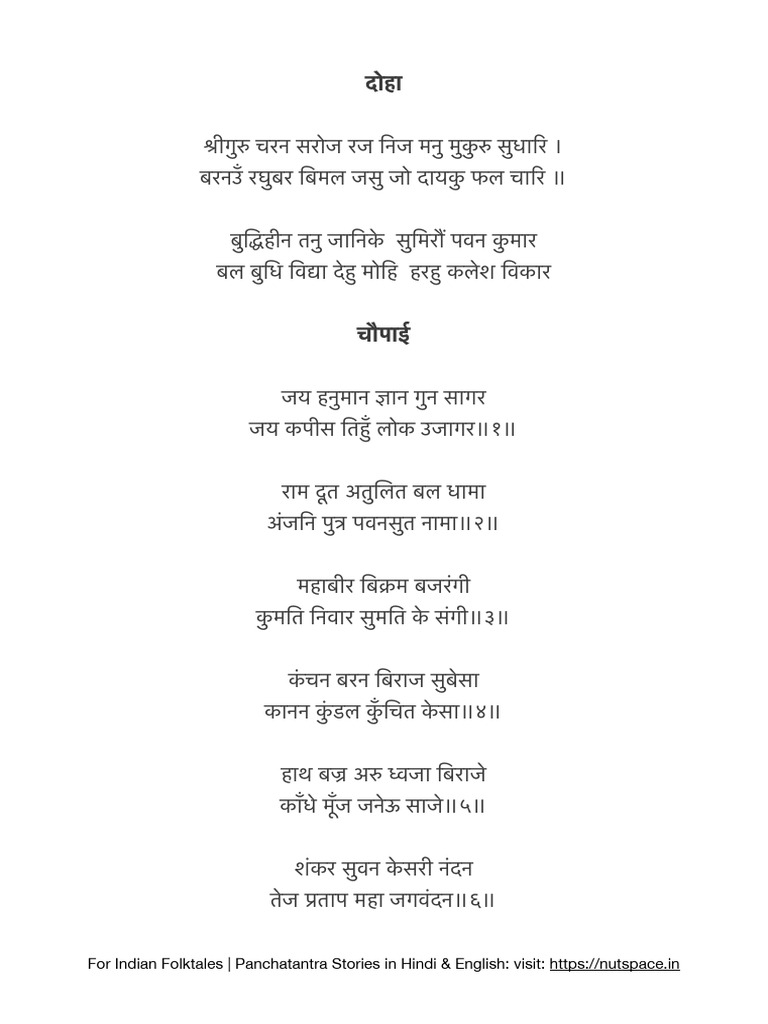 दोहा
श्रीगुरु चरन सरोज रज निज मनु मुकुरु सुधारि ।
बरनउँ रघुबर बिमल जसु जो दायकु फल चारि ॥
बुद्धिहीन तनु जानिके सुमिरौं पवन कुमार
बल बुधि विद्या देहु मोहि हरहु कलेश विकार
चौपाई
जय हनुमान ज्ञान गुन सागर
जय कपीस तिहुँ लोक उजागर॥१॥
राम दूत अतुलित बल धामा
अंजनि पुत्र पवनसुत नामा॥२॥
महाबीर बिक्रम बजरंगी
कुमति निवार सुमति के संगी॥३॥
कंचन बरन बिराज सुबेसा
कानन कुंडल कुँचित केसा॥४॥
हाथ बज्र अरु ध्वजा बिराजे
काँधे मूँज जनेऊ साजे॥५॥
शंकर सुवन केसरी नंदन
तेज प्रताप महा जगवंदन॥६॥
For Indian Folktales | Panchatantra Stories in Hindi & English: visit: https://nutspace.in